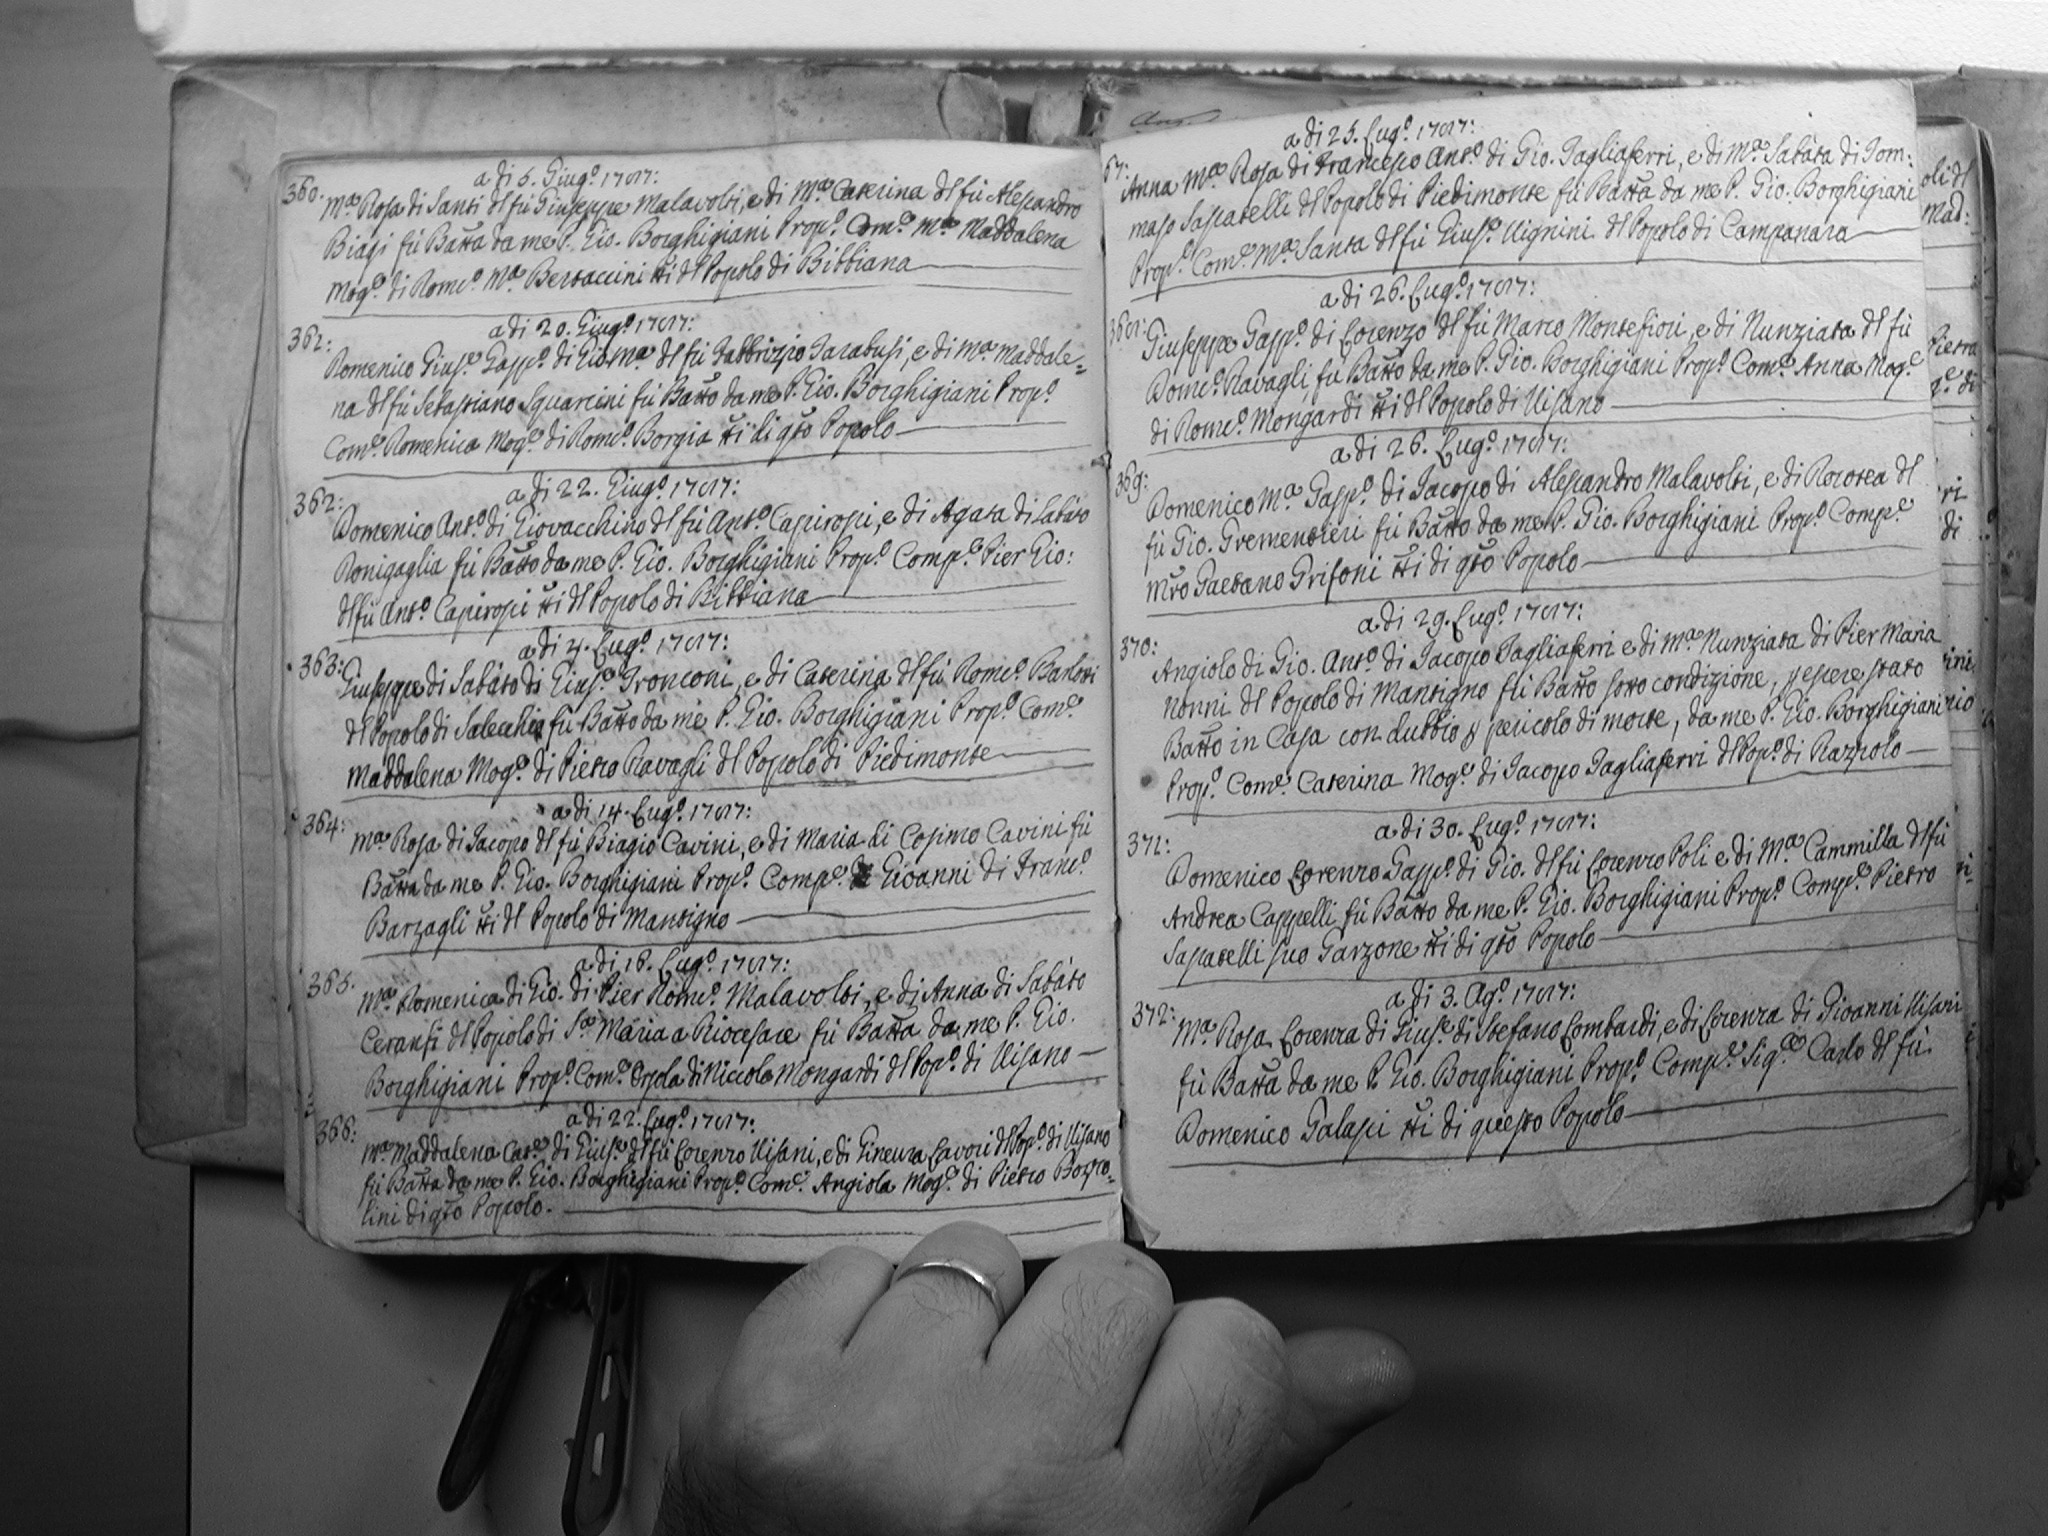 a di 5. Giug.º 1787:
360: M.ª Rosa di Santi dl fù Giuseppe Malavolti, e di M.ª Caterina dl fù Alessandro
Biagi fù Batta da me P. Gio. Borghigiani Prop.º Com.e M.ª Maddalena
Mog.e di Dom.co M.ª Bertaccini tti dl Popolo di Bibbiana
a di 20. Giug.º 1787:
361: Domenico Gius.e Gasp.e di Gio: M.ª dl fù Fabbrizio Tarabusi, e di M.ª Maddale=
na dl fù Sebastiano Squarcini fù Batto da me P. Gio. Borghigiani Prop.º
Com.e Domenica Mog.e di Dom.co Borgia tti di qto Popolo
a di 22. Giug.º 1787:
362: Domenico Ant.º di Giovacchino dl fù Ant.º Capirossi, e di Agata di Sabato
Donigaglia fù Batto da me P. Gio. Borghigiani Prop.º Comp.e Pier Gio:
dl fù Ant.º Capirossi tti dl Popolo di Bibbiana
a di 4. Lug.º 1787:
363: Giuseppe di Sabato di Gius.e Tronconi, e di Caterina dl fù Dom.co Barlotti
dl Popolo di Salecchio fù Batto da me P. Gio. Borghigiani Prop.º Com.e
Maddalena Mog.e di Pietro Ravagli dl Popolo di Piedimonte
a di 14. Lug.º 1787:
364: M.ª Rosa di Jacopo dl fù Biagio Cavini, e di Maria di Cosimo Cavini fù
Batta da me P. Gio. Borghigiani Prop.º Comp.e Gioanni di Franc.º
Barzagli tti dl Popolo di Mantigno
a di 16. Lug.º 1787:
365. M.ª Domenica di Gio. di Pier Dom.co Malavolti, e di Anna di Sabato
Ceranti dl Popolo di S.ª Maria a Riocesare fù Batta da me P. Gio.
Borghigiani Prop.º Com.e Orsola di Niccola Mongardi dl Pop.º di Visano
a di 22. Lug.º 1787:
366: M.ª Maddalena Cat.ª di Gius.e dl fù Lorenzo Visani, e di Ginevra Lavori dl Pop.º di Visano
fù Batta da me P. Gio. Borghigiani Prop.º Com.e Angiola Mog.e di Pietro
lini di qto Popolo.
a di 25. Lug.º 1787:
67: Anna M.ª Rosa di Francesco Ant.º di Gio. Tagliaferri, e di M.ª Sabata di Tom:
maso Sassatelli dl Popolo di Piedimonte fù Batta da me P. Gio. Borghigiani
Prop.º Com.e M.ª Santa dl fù Gius.e Vignini dl Popolo di Campanara
a di 26. Lug.º 1787:
368: Giuseppe Gasp.e di Lorenzo dl fù Marco Montefiori, e di Nunziata dl fù
Dom.co Ravagli, fù Batto da me P. Gio. Borghigiani Prop.º Com.e Anna Mog.e
di Dom.co Mongardi tti dl Popolo di Visano
a di 26. Lug.º 1787:
369: Domenico M.ª Gasp.e di Jacopo di Alessandro Malavolti, e di Dorotea dl
fù Gio. Trementieri fù Batto da me P. Gio. Borghigiani Prop.º Comp.e
Mro Gaetano Grifoni tti di qto Popolo
a di 29. Lug.º 1787:
370: Angiolo di Gio. Ant.º di Jacopo Tagliaferri e di M.ª Nunziata di Pier Maria
Nonni dl Popolo di Mantigno fù Batto sotto condizione, p essere stato
Batto in Casa con dubbio p pericolo di morte, da me P. Gio. Borghigiani
Prop.º Com.e Caterina Mog.e di Jacopo Tagliaferri dl Pop.º di Razzolo
a di 30. Lug.º 1787:
371: Domenico Lorenzo Gasp.e di Gio. dl fù Lorenzo Poli e di M.ª Cammilla dl fù
Andrea Cappelli fù Batto da me P. Gio. Borghigiani Prop.º Comp.e Pietro
Sassatelli suo Garzone tti di qto Popolo
a di 3. Ag.º 1787:
372: M.ª Rosa Lorenza di Gius.e di Stefano Lombardi, e di Lorenza di Gioanni Visani
fù Batta da me P. Gio. Borghigiani Prop.º Comp.e Sig.re Carlo dl fù
Domenico Galassi tti di questo Popolo